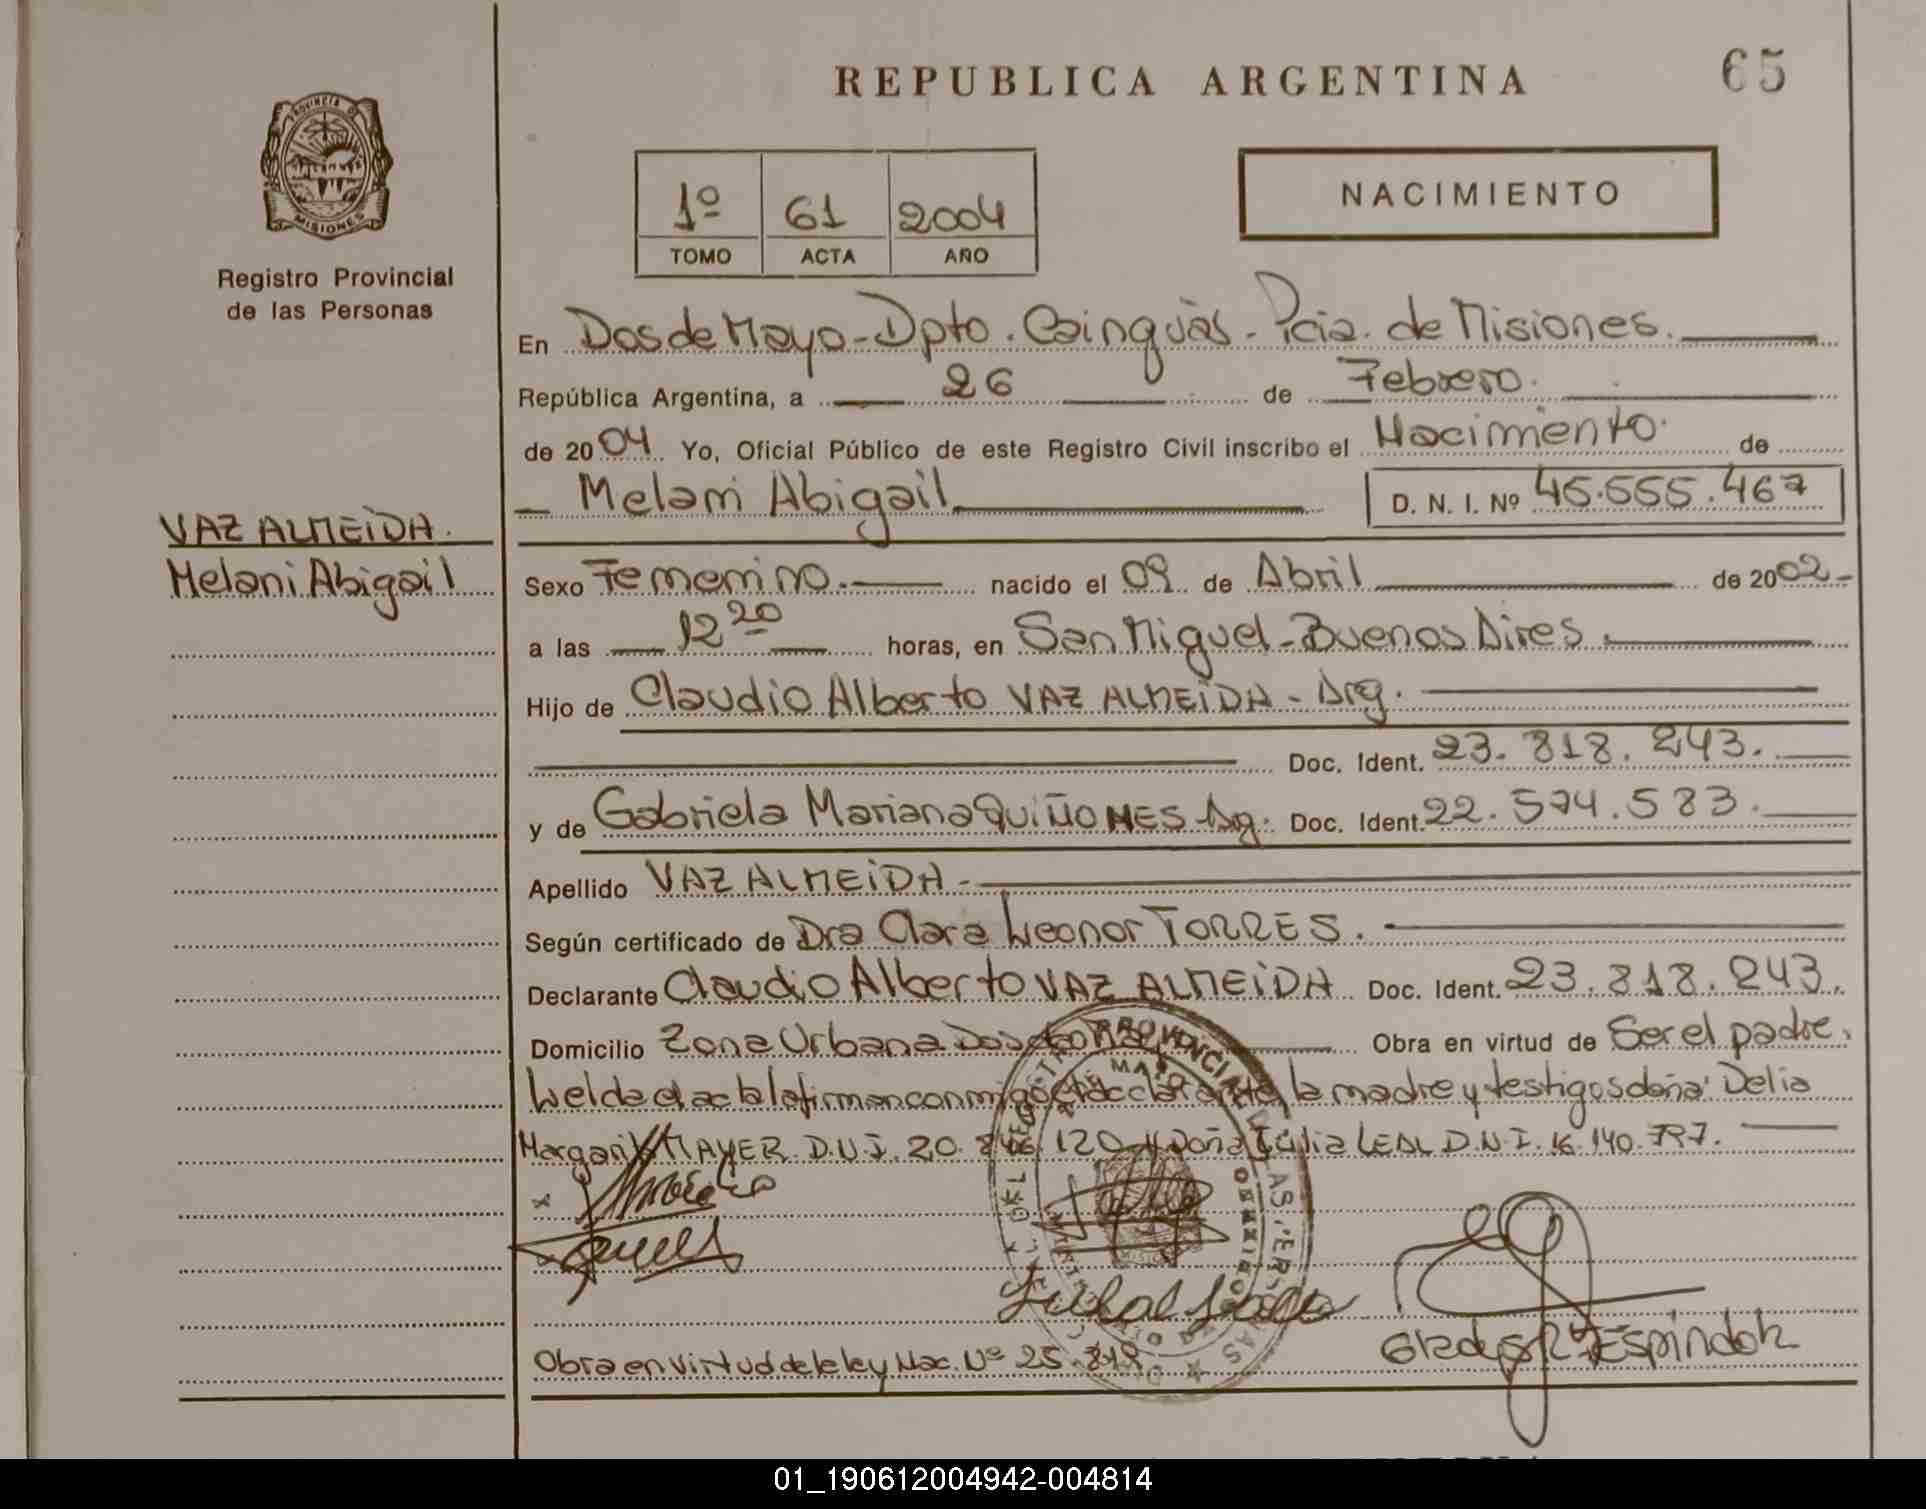 REPUBLICA ARGENTINA
65
PROVINCIA D
MISIONES
Registro Provincial
de las Personas
1º 61 2004
TOMO ACTA AÑO
NACIMIENTO
En Dos de Mayo - Dpto. Cainguás - Pcia. de Misiones.
República Argentina, a 26 de Febrero.
de 2004 Yo, Oficial Público de este Registro Civil inscribo el Nacimiento de
Melani Abigail D. N. I. Nº 45.555.467
VAZ ALMEIDA.
Melani Abigail
Sexo Femenino. nacido el 09 de Abril de 2002
a las 12 20 horas, en San Miguel - Buenos Aires.
Hijo de Claudio Alberto VAZ ALMEIDA - Arg.
Doc. Ident. 23.818.243.
y de Gabriela Mariana QUIÑONES - Arg. Doc. Ident. 22.574.583.
Apellido VAZ ALMEIDA -
Según certificado de Dra Clara Leonor TORRES.
Declarante Claudio Alberto VAZ ALMEIDA Doc. Ident. 23.818.243.
Domicilio Zona Urbana Dos de Mayo Obra en virtud de Ser el padre.
Leida el acta la firman conmigo el declarante, la madre y testigos doña: Delia
Margarita MAYER D.N.I. 20. 120 y Doña Julia LEAL D.N.I. 16.140.797.
Gladys Espindola
Obra en virtud de la ley Nac. Nº 25.819.
01_190612004942-004814